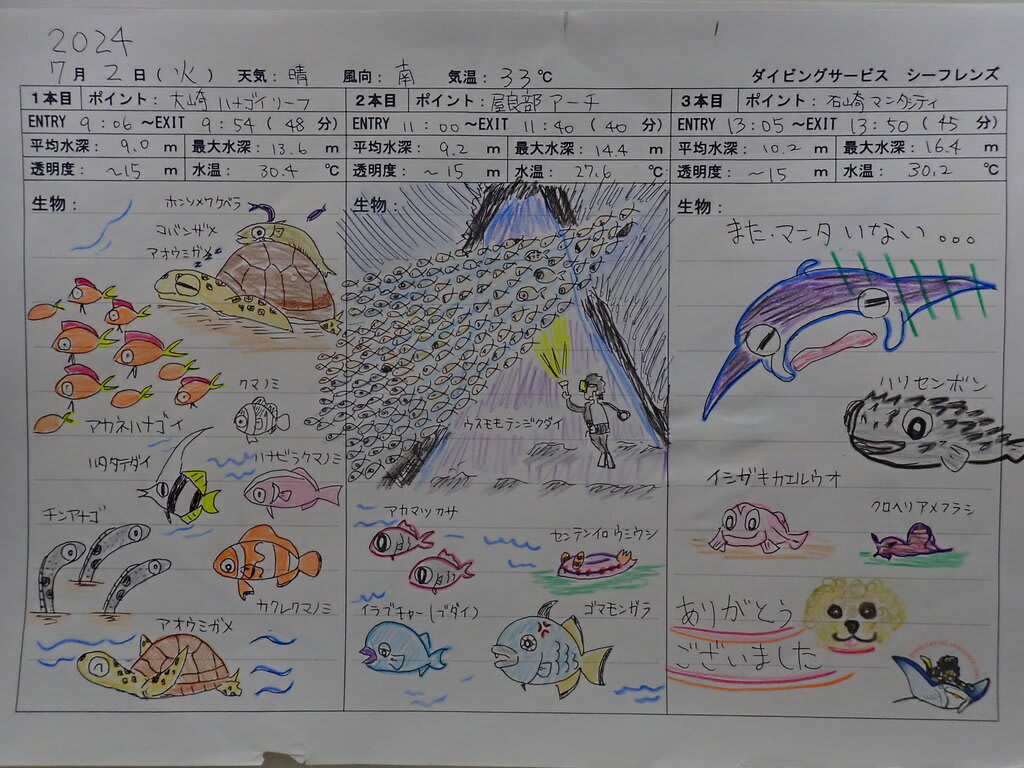 2024
7月2日(火) 天気:晴 風向:南 気温:33℃ ダイビングサービス シーフレンズ
1本目 ポイント:大崎ハナゴイリーフ
ENTRY 9:06 ~EXIT 9:54 (48 分)
平均水深: 9.0 m 最大水深: 13.6 m
透明度: ~15 m 水温: 30.4 ℃
生物:
ホンソメワケベラ
コバンザメ
アオウミガメ
クマノミ
アカネハナゴイ
ハタタテダイ
ハナビラクマノミ
チンアナゴ
カクレクマノミ
アオウミガメ
2本目 ポイント:屋良部アーチ
ENTRY 11:00 ~EXIT 11:40 (40 分)
平均水深: 9.2 m 最大水深: 14.4 m
透明度: ~15 m 水温: 27.6 ℃
生物:
ウスモモテンジクダイ
アカマツカサ
センテンイロウミウシ
イラブチャー(ブダイ)
ゴマモンガラ
3本目 ポイント:石崎マンタシティ
ENTRY 13:05 ~EXIT 13:50 (45 分)
平均水深: 10.2 m 最大水深: 16.4 m
透明度: ~15 m 水温: 30.2 ℃
生物:
また・マンタいない。。。
ハリセンボン
イシガキカエルウオ
クロヘリアメフラシ
ありがとう
ございました